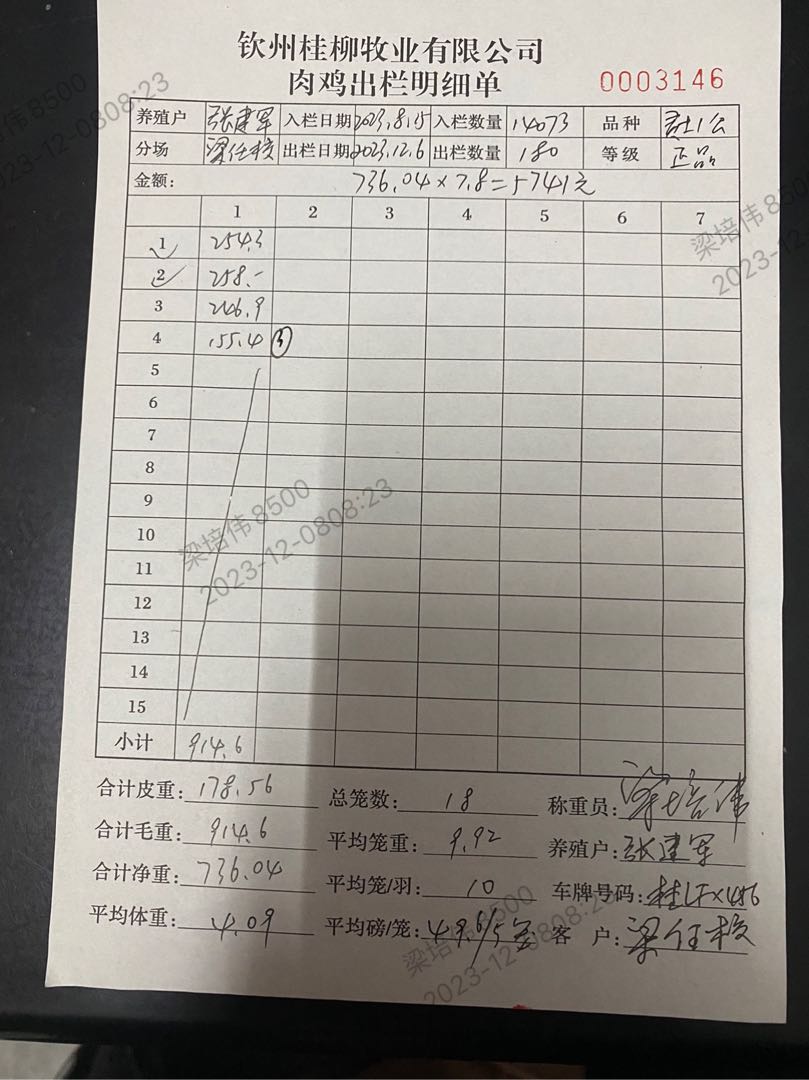 钦州桂柳牧业有限公司
肉鸡出栏明细单 0003146
养殖户 张建军 入栏日期 2023.8.15 入栏数量 14073 品种
分场 出栏日期 2023.12.6 出栏数量 180 等级 正品
金额: 736.04×7.8=5741元
1 2 3 4 5 6 7
1 254.3
2 258.-
3 246.9
4 155.4 ③
5
6
7
8
9
10
11
12
13
14
15
小计 914.6
合计皮重: 178.56 总笼数: 18 称重员: 梁培伟
合计毛重: 914.6 平均笼重: 9.92 养殖户: 张建军
合计净重: 736.04 平均笼/羽: 10 车牌号码: 桂LFX456
平均体重: 4.09 平均磅/笼: 49.6/5 客户:
梁培伟 8500
2023-12-08 08:23